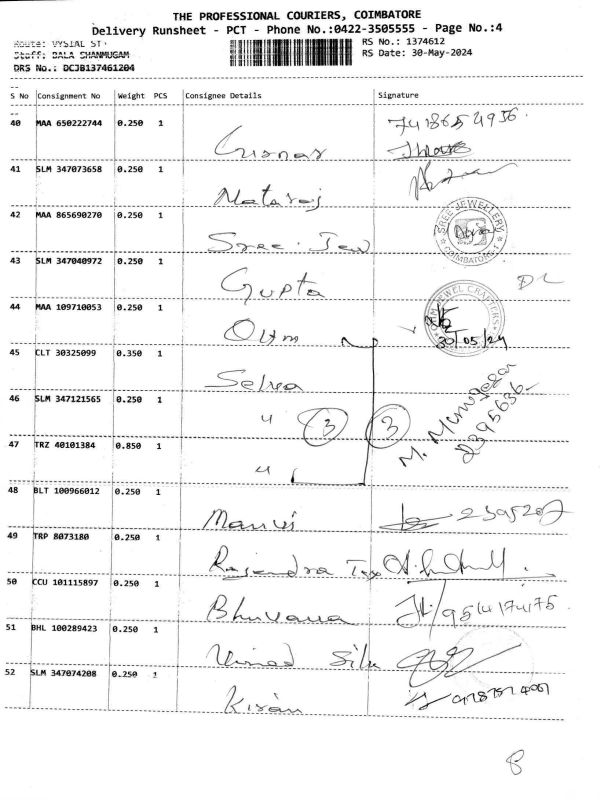 THE PROFESSIONAL COURIERS, COIMBATORE
Delivery Runsheet - PCT - Phone No.:0422-3505555 - Page No.:4
Route: VYSIAL ST. RS No.: 1374612
Staff: BALA SHANMUGAM RS Date: 30-May-2024
DRS No.: DCJB137461204
S No Consignment No Weight PCS Consignee Details Signature
40 MAA 650222744 0.250 1
41 SLM 347073658 0.250 1 Nataraj
42 MAA 865690270 0.250 1 Sree. Jew SREE JEWELLERY COIMBATORE-1
43 SLM 347040972 0.250 1 Gupta DL
44 MAA 109710053 0.250 1 JEWEL CRAFTERS 30/05/24
45 CLT 30325099 0.350 1 Selva
46 SLM 347121565 0.250 1 " 3 3 M. Murugesan 2395636
47 TRZ 40101384 0.850 1 "
48 BLT 100966012 0.250 1
49 TRP 8073180 0.250 1 Rajendra Tex
50 CCU 101115897 0.250 1 Bhuvana
51 BHL 100289423 0.250 1 Vinod Silv
52 SLM 347074208 0.250 1 Kiran
8